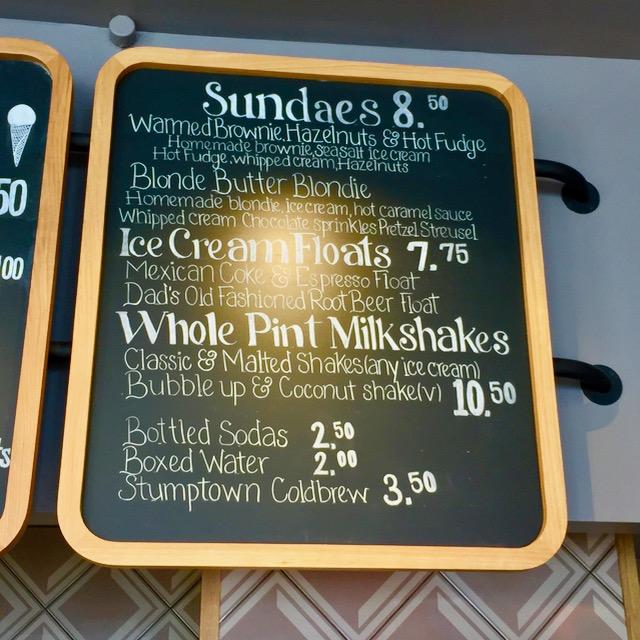 Sundaes 8.50
Warmed Brownie, Hazelnuts & Hot Fudge
Homemade brownie, sea salt Ice cream
Hot Fudge, whipped cream, Hazelnuts
Blonde Butter Blondie
Homemade blondie, ice cream, hot caramel sauce
Whipped cream Chocolate sprinkles Pretzel Streusel
Ice Cream Floats 7.75
Mexican Coke & Espresso Float
Dad's Old Fashioned Root Beer Float
Whole Pint Milkshakes
Classic & Malted Shakes (any ice cream)
Bubble up & Coconut shake (v) 10.50
Bottled Sodas 2.50
Boxed Water 2.00
Stumptown Coldbrew 3.50
50
00